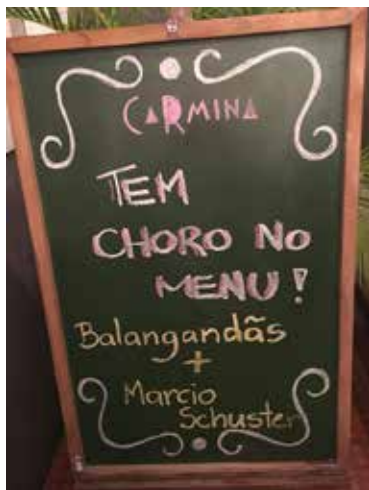 CARMINA
TEM
CHORO NO
MENU!
Balangandãs
+
Marcio
Schuster